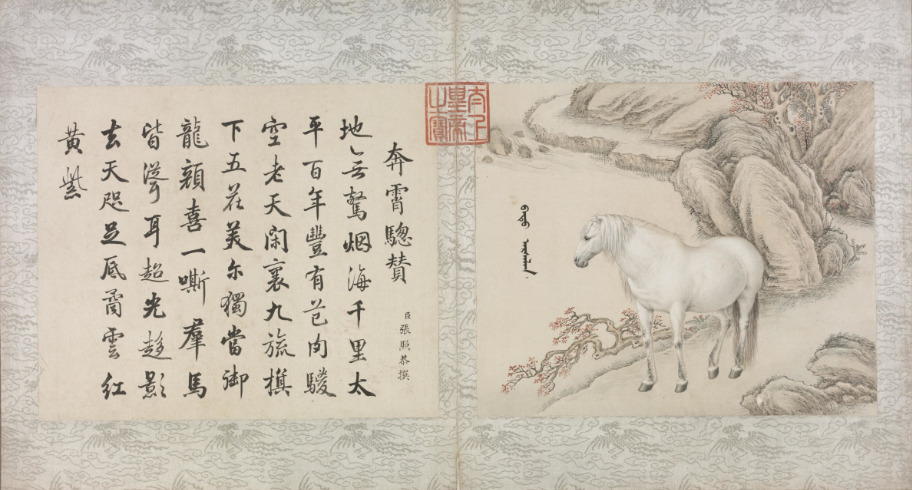 太上
皇帝
之寶
奔霄驄賛
臣張照恭撰
地無駑烟海千里太
平百年豐有芑肉騣
空老天閑裏九旒
下五花美尔獨當御
龍顔喜一嘶羣馬
皆聳耳超光趂影
玄天咫足底矞雲紅
黃紫